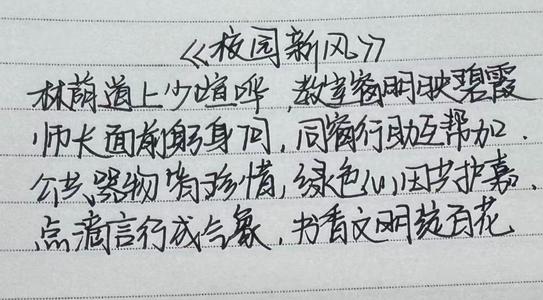 《校园新风》
林荫道上少喧哗,教室窗明映碧霞
师长面前躬身问,同窗行助互帮加.
公共器物皆珍惜,绿色心田共护嘉.
点滴言行成气象.书香文明绽百花